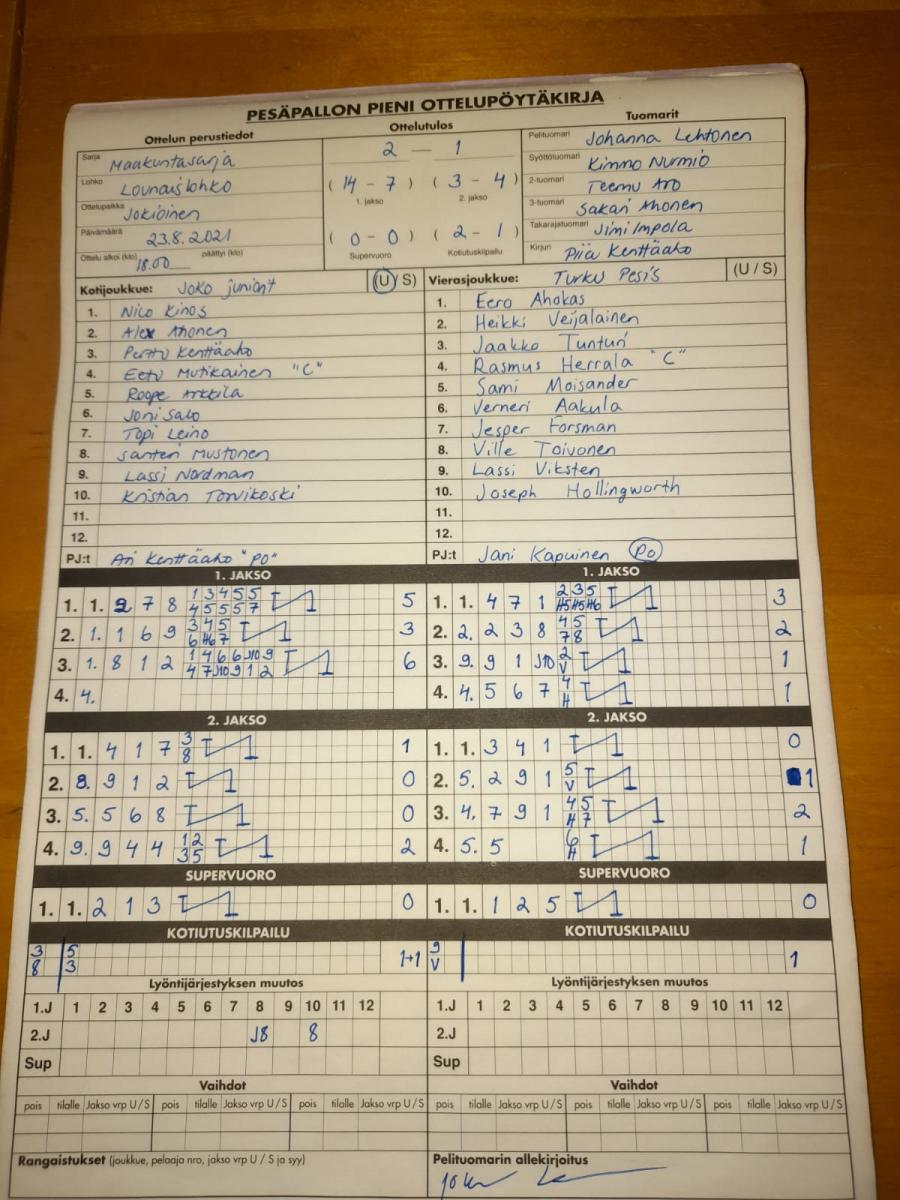 PESÄPALLON PIENI OTTELUPÖYTÄKIRJA
Ottelun perustiedot
Sarja Maakuntasarja
Lohko Lounaislohko
Ottelupaikka Jokioinen
Päivämäärä 23.8.2021
Ottelu alkoi (klo) 18.00 päättyi (klo)
Ottelutulos
2 — 1
( 14 - 7 ) ( 3 - 4 )
1. jakso 2. jakso
( 0 - 0 ) ( 2 - 1 )
Supervuoro Kotiutuskilpailu
Tuomarit
Pelituomari Johanna Lehtonen
Syöttötuomari Kimmo Nurmio
2-tuomari Teemu Aro
3-tuomari Sakari Ahonen
Takarajatuomari Jimi Impola
Kirjuri Piia Kenttäaho
Kotijoukkue: Joko juniorit (U / S)
1. Nico Kinos
2. Alex Ahonen
3. Perttu Kenttäaho
4. Eetu Mutikainen "C"
5. Roope Arkkila
6. Joni Salo
7. Topi Leino
8. Santeri Mustonen
9. Lassi Nordman
10. Kristian Torvikoski
11.
12.
PJ:t Ari Kenttäaho "PO"
Vierasjoukkue: Turku Pesis (U / S)
1. Eero Ahokas
2. Heikki Veijalainen
3. Jaakko Tunturi
4. Rasmus Herrala "C"
5. Sami Moisander
6. Verneri Aakula
7. Jesper Forsman
8. Ville Toivonen
9. Lassi Viksten
10. Joseph Hollingworth
11.
12.
PJ:t Jani Kapuinen PO
1. JAKSO
1. 1. 2 7 8 1 3 4 5 5 5
4 5 5 5 7
2. 1. 1 6 9 3 4 5 3
6 H6 7
3. 1. 8 1 2 1 4 6 6 J10 9 6
4 7 J10 9 1 2
4. 4.
1. JAKSO
1. 1. 4 7 1 2 3 5 3
H5 H5 H6
2. 2. 2 3 8 4 5 2
7 8
3. 9. 9 1 J10 2 1
V
4. 4. 5 6 7 4 1
H
2. JAKSO
1. 1. 4 1 7 3 1
8
2. 8. 9 1 2 0
3. 5. 5 6 8 0
4. 9. 9 4 4 1 2 2
3 5
2. JAKSO
1. 1. 3 4 1 0
2. 5. 2 9 1 5 1
V
3. 4. 7 9 1 4 5 2
H 7
4. 5. 5 6 1
H
SUPERVUORO
1. 1. 2 1 3 0
SUPERVUORO
1. 1. 1 2 5 0
KOTIUTUSKILPAILU
3 5 1+1
8 3
KOTIUTUSKILPAILU
9 1
V
Lyöntijärjestyksen muutos
1.J 1 2 3 4 5 6 7 8 9 10 11 12
2.J J8 8
Sup
Lyöntijärjestyksen muutos
1.J 1 2 3 4 5 6 7 8 9 10 11 12
2.J
Sup
Vaihdot
pois tilalle Jakso vrp U / S pois tilalle Jakso vrp U / S pois tilalle Jakso vrp U / S
Vaihdot
pois tilalle Jakso vrp U / S pois tilalle Jakso vrp U / S pois tilalle Jakso vrp U / S
Rangaistukset (joukkue, pelaaja nro, jakso vrp U / S ja syy)
Pelituomarin allekirjoitus